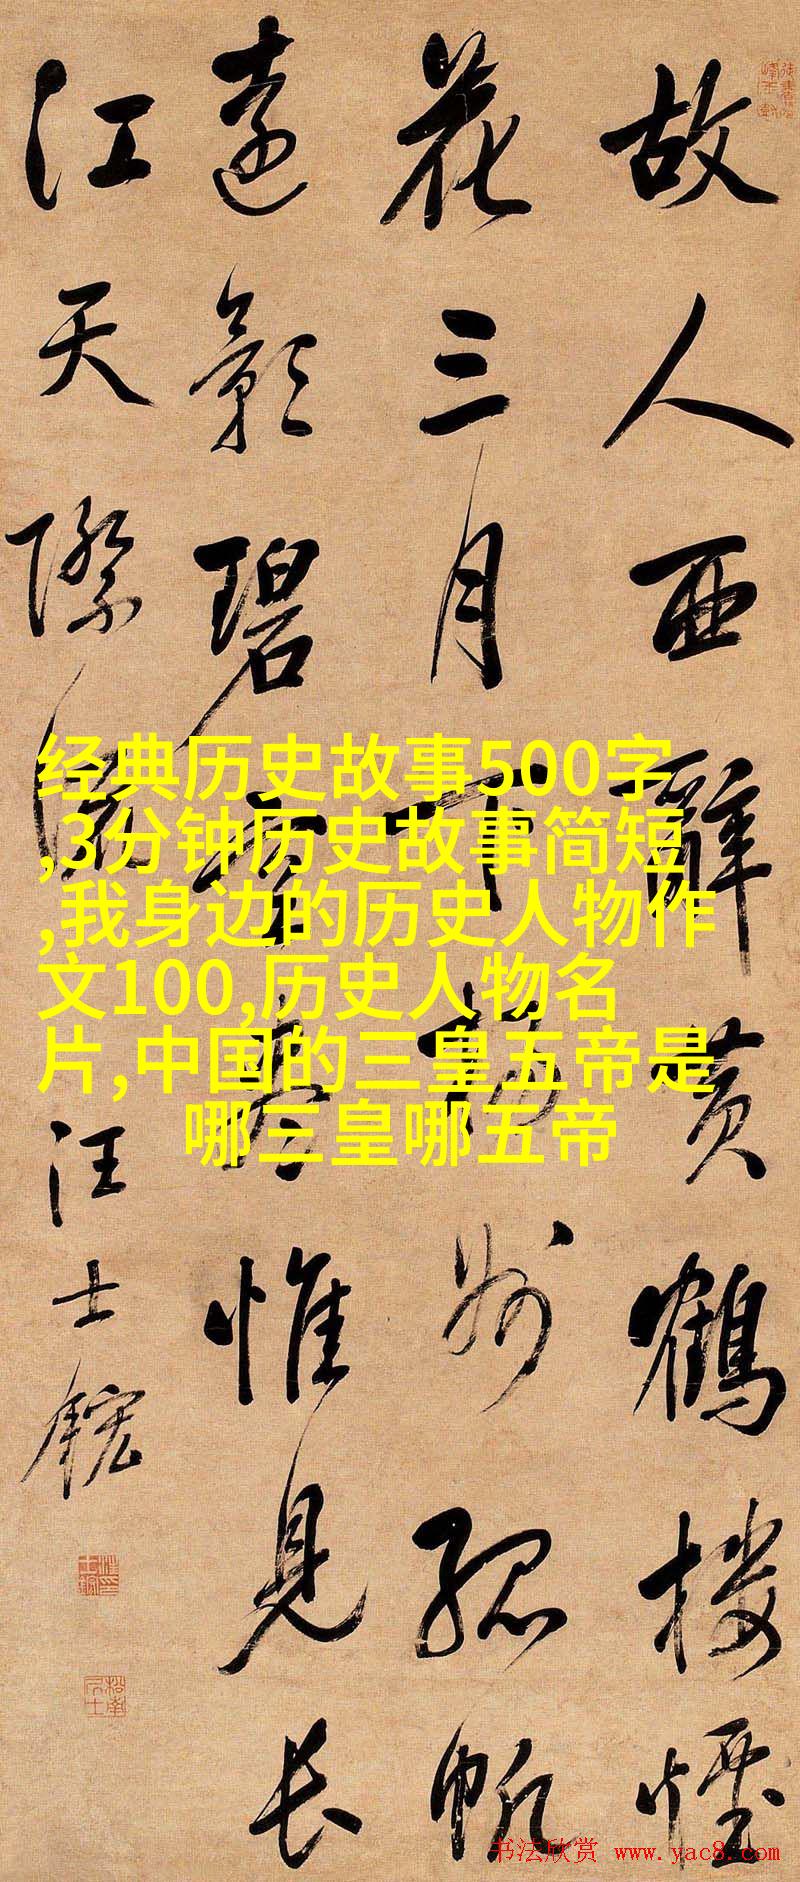 故人西辭黃鶴樓煙
花三月下揚州孤帆
遠影碧空盡惟見長
江天際流
汪士鋐
经典历史故事500字
,3分钟历史故事简短
,我身边的历史人物作
文100,历史人物名
片,中国的三皇五帝是
哪三皇哪五帝
书法欣赏 www.yac8.com